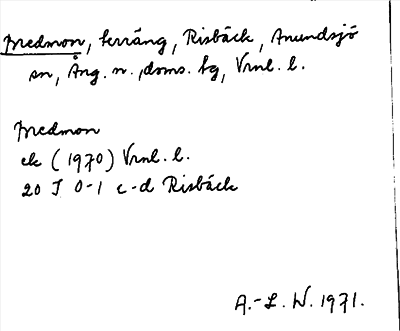 Mredmon, terräng, Risbäck, Anundsjö
sn, Ång. n., doms. hg, Vrnl. l.
Mredmon
ek (1970) Vrnl. l.
20 J 0-1 c-d Risbäck
A.-L. W. 1971.